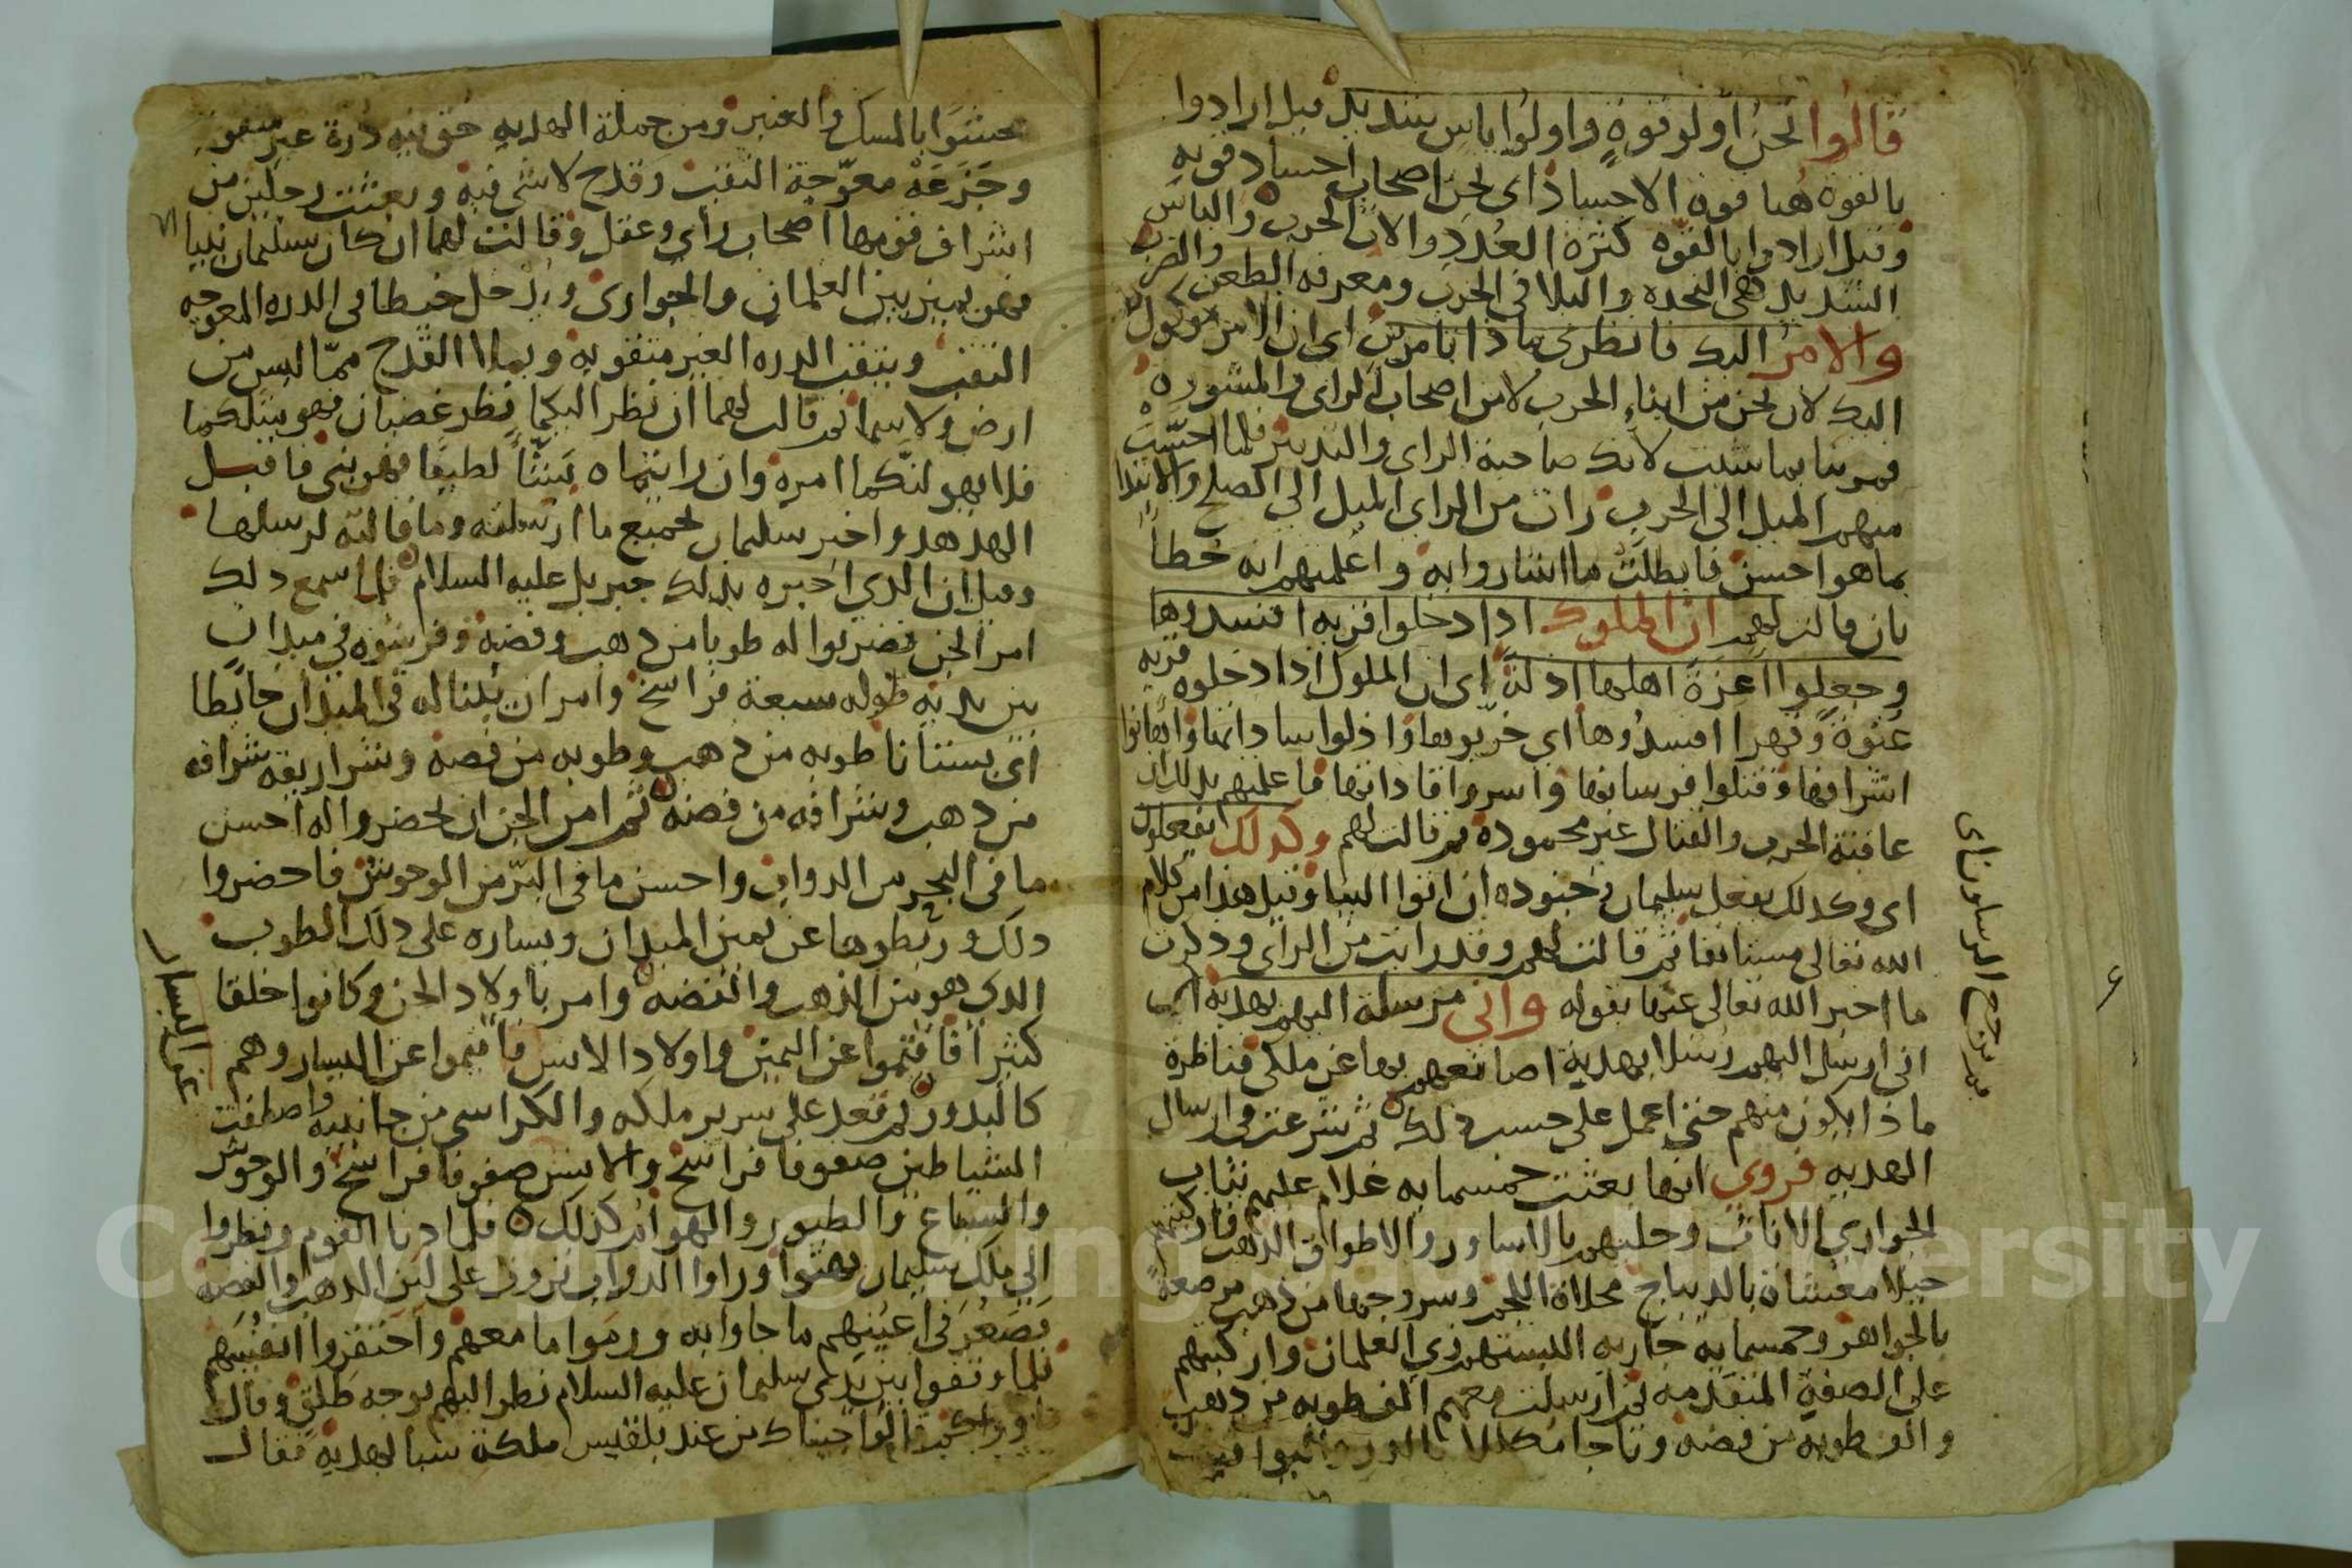 قالوا نحن اولو قوة واولوا باس شديد قيل ارادوا
بالقوة هنا قوة الاجساد اى نحن اصحاب اجساد قويه
وقيل ارادوا بالقوه كثرة العدد والات الحرب والباس
الشديد هى النجده والبلا فى الحرب ومعرفه الطعن والضرب
والامر اليك فانظرى ماذا تامرين اى ان الامر موكول
اليك لان نحن من ابناء الحرب لا من اصحاب الراى والمشوره
فمرينا بما شيت لانك صاحبة الراى والتدبير فلما احسّت
منهم الميل الى الحرب رات من الراى الميل الى الصلح والابتدا
بما هو احسن فابطلت ما اشاروا به واعلمتهم انه خطا
بان قالت لهم ان الملوك اذا دخلوا قرية افسدوها
وجعلوا اعزة اهلها اذلة اى ان الملوك اذا دخلوه قريه
عنوة وقهرا افسدوها اى خربوها واذلوا ساداتها واهانوا
اشرافها وقتلوا فرسانها واسروا قاداتها فاعلمتهم بذلك ان
عاقبة الحرب والقتال غير محموده ثم قالت لهم وكذلك يفعلون
اى وكذلك يفعل سليمان وجنوده ان اتوا الينا وقيل هذا من كلام
الله تعالى مستانفا ثم قالت لهم وقد رايت من الراى وذكرت
ما اخبر الله تعالى عنها بقوله وانى مرسلة اليهم بهدية اى
انى ارسل اليهم رسلا بهدية اصانعهم بها عن ملكى فناظرة
ماذا يكون منهم حتى اعمل على حسب ذلك ثم شرعت فى ارسال
الهديه فروي انها بعثت خمسمايه غلام عليهم ثياب
الجواري الاناث وحليهم بالاساور والاطواق الذهب فاركبتهم
خيلا مغشاة بالديباج محلاة اللجم وسروجها من ذهب مرصعة
بالجواهر وخمسماية جاريه البستهم زي الغلمان واركبتهم
على الصفة المتقدمه ثم ارسلت معهم الف طوبه من ذهب
والف طوبه من فضه وتاجا مكللا بالدر واليواقيت
عشوا بالمسك والعنبر ومن جملة الهديه حق فيه درة غير مثقوبه
وجزعة معوّجة الثقب وقدح لا شى فيه وبعثت رجلين من
اشراف قومها اصحاب راى وعقل وقالت لهما ان كان سليمان نبيا
فهو يميز بين الغلمان والجوارى ويدخل خيطا فى الدره المعوجه
الثقب ويثقب الدره الغير مثقوبه ويملا القدح ممّا ليس من
ارض ولا سما ثم قالت لهما ان نظر اليكما نظر غضبان فهو ملك
فلا يهولنّكما امره وان رايتماه بشّاً لطيفا فهو نبى فاقبل
الهدهد واخبر سليمان بجميع ما ارسلته وما قالته لرسلها
وقيل ان الذي اخبره بذلك جبريل عليه السلام فلما سمع ذلك
امر الجن فضربوا له طوبا من ذهب وفضة وفرشوه في ميدان
بين يديه طوله سبعة فراسخ وامر ان يبنا له فى الميدان حايطا
اى بستانا طوبه من ذهب وطوبه من فضه وشراريفه شرافه
من ذهب وشرافه من فضه ثم امر الجن ان يحضروا له احسن
ما فى البحر من الدواب واحسن ما فى البرّ من الوحوش فاحضروا
ذلك وربطوها عن يمين الميدان ويساره على ذلك الطوب
الذى هو من الذهب والفضه وامر باولاد الجن وكانوا خلقا
كثيرا فاقيموا عن اليمين واولاد الانس فاقيموا عن اليسار وهم
كالبدور ثم قعد على سرير ملكه والكراسي من جانبيه واصطفت
الشياطين صفوفا فراسخ والانس صفوفا فراسخ والوحوش
والسباع والطيور والهوام كذلك فلما دنا القوم ونظروا
الى ملك سليمان بهتوا وراوا الدواب تروث على لبن الذهب والفضة
فصغر فى اعينهم ما جاوا به ورموا ما معهم واحتقروا انفسهم
فلما وقفوا بين يدى سليمان عليه السلام نظر اليهم بوجه طلق وقال
ما وراكم قالوا جيناك من عند بلقيس ملكة سبا بهدية فقال
عن اليسار
Copyright © King Saud University